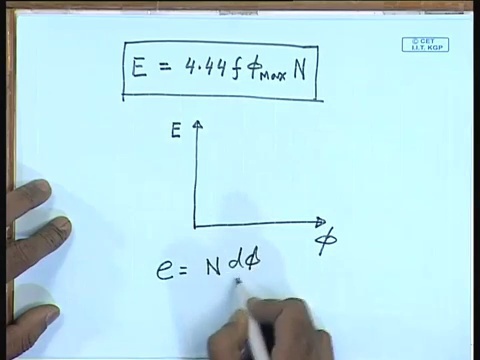 © CET
I.I.T. KGP
E = 4.44 f ϕMax N
E
ϕ
e = N dϕ